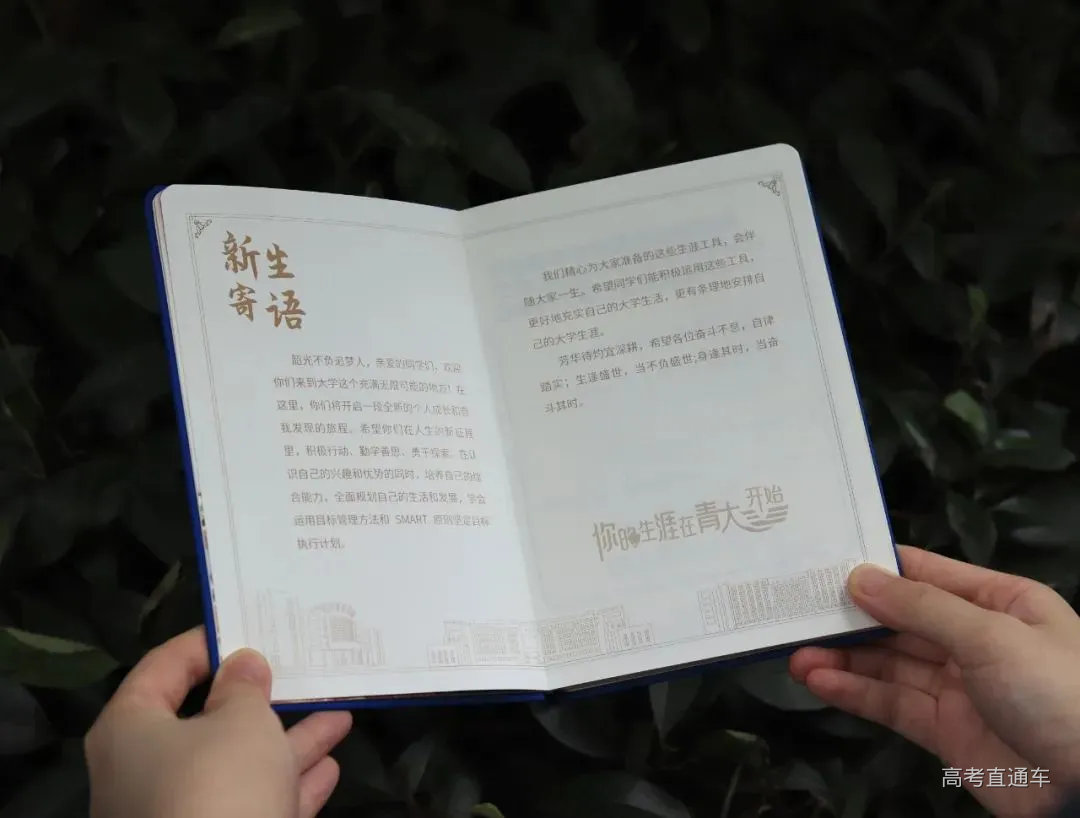 新生
寄语
韶光不负追梦人,亲爱的同学们,欢迎
你们来到大学这个充满无限可能的地方!在
这里,你们将开启一段全新的个人成长和自
我发现的旅程。希望你们在人生的新征程
里,积极行动、勤学善思、勇于探索。在认
识自己的兴趣和优势的同时,培养自己的综
合能力,全面规划自己的生活和发展,学会
运用目标管理方法和 SMART 原则坚定目标
执行计划。
我们精心为大家准备的这些生涯工具,会伴
随大家一生。希望同学们能积极运用这些工具,
更好地充实自己的大学生活,更有条理地安排自
己的大学生涯。
芳华待灼宜深耕,希望各位奋斗不息,自律
踏实;生逢盛世,当不负盛世;身逢其时,当奋
斗其时。
你的生涯在青大开始
高考直通车